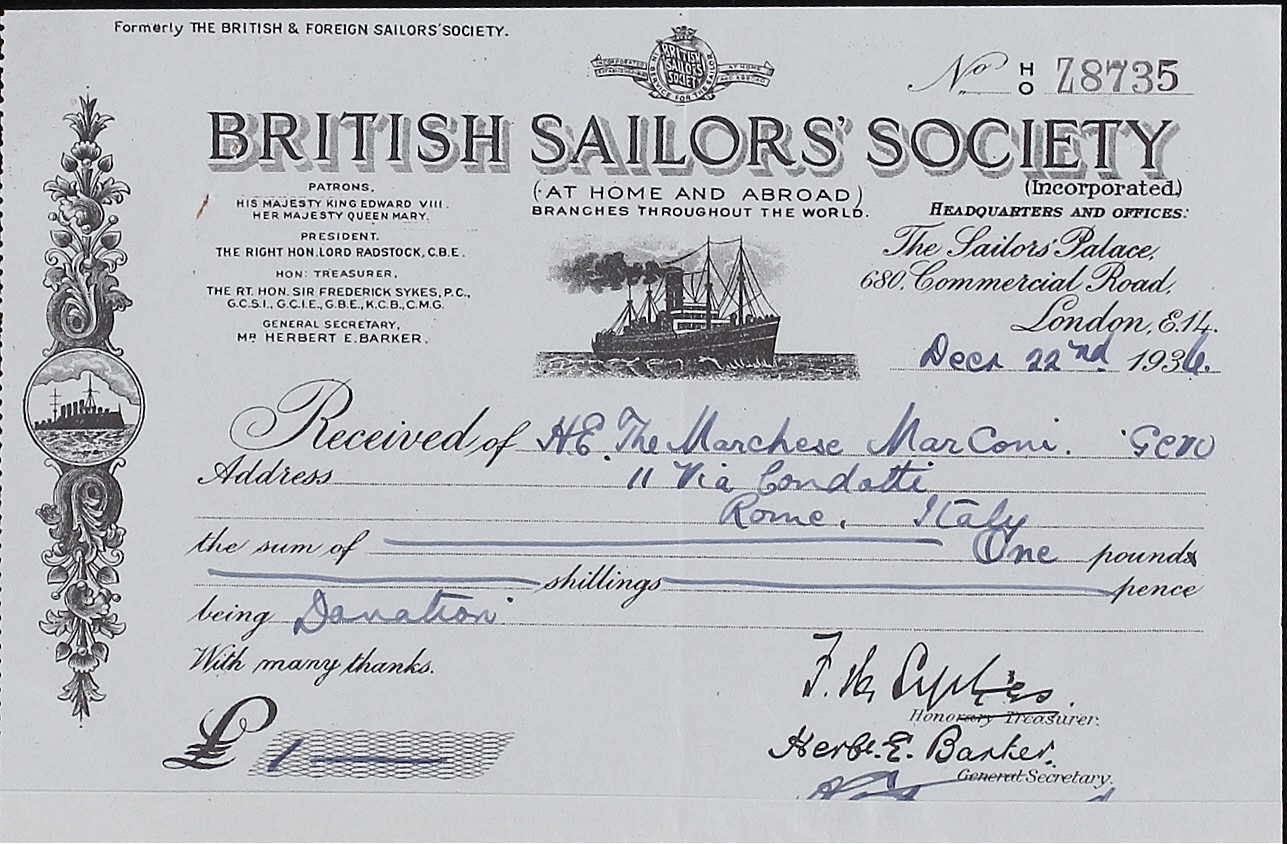 Formerly THE BRITISH & FOREIGN SAILORS' SOCIETY.
INCORPORATED
BRITISH SAILORS SOCIETY
AT HOME AND ABROAD
IN SERVICE FOR THE SAILOR
No. H O Z8735
BRITISH SAILORS' SOCIETY
(Incorporated.)
(AT HOME AND ABROAD)
BRANCHES THROUGHOUT THE WORLD.
PATRONS,
HIS MAJESTY KING EDWARD VIII.
HER MAJESTY QUEEN MARY.
PRESIDENT.
THE RIGHT HON. LORD RADSTOCK, C.B.E.
HON: TREASURER,
THE RT. HON. SIR FREDERICK SYKES, P.C.,
G.C.S.I., G.C.I.E., G.B.E., K.C.B., C.M.G.
GENERAL SECRETARY,
MR HERBERT E. BARKER.
HEADQUARTERS AND OFFICES:
The Sailors' Palace,
680, Commercial Road,
London, E.14.
Decr 22nd 1936.
Received of H.E. The Marchese Marconi. GCVO
Address 11 Via Condotti
Rome. Italy
the sum of One pounds
shillings pence
being Donation
With many thanks.
£ 1
F. H. Sykes.
Honorary Treasurer.
Herbt. E. Barker.
General Secretary.